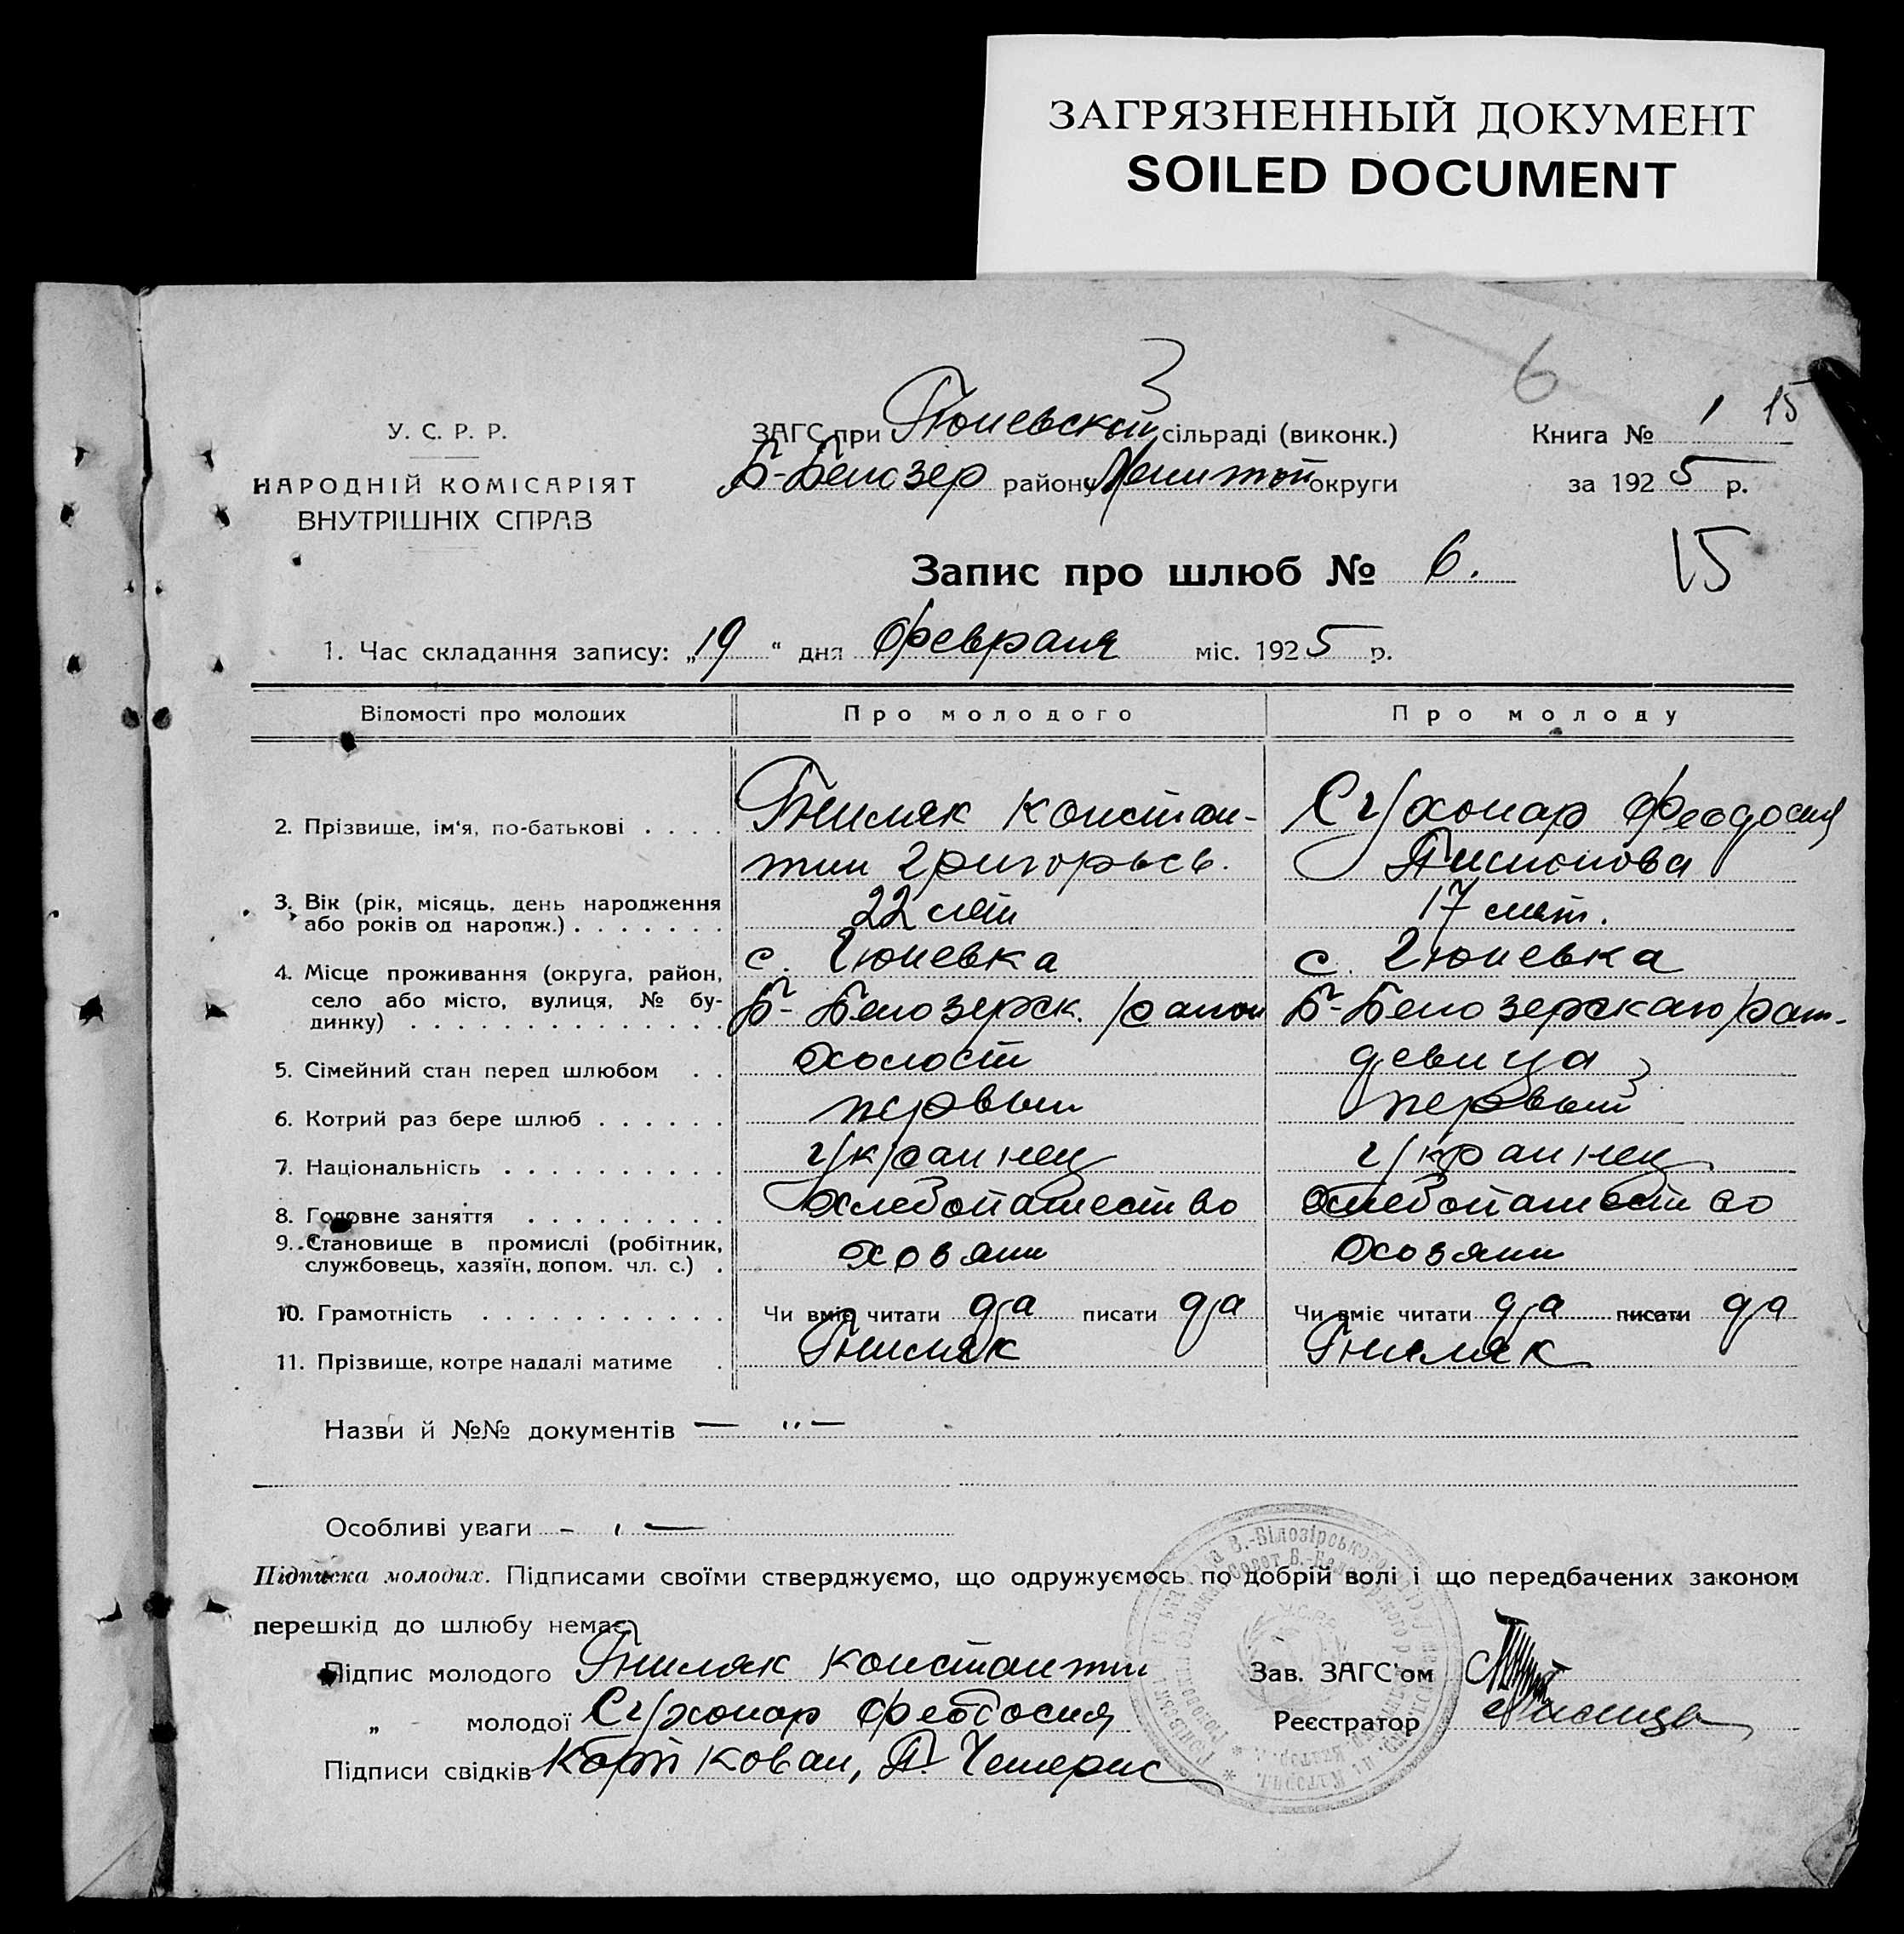 ЗАГРЯЗНЕННЫЙ ДОКУМЕНТ
SOILED DOCUMENT
6
1 15
У. С. Р. Р.
НАРОДНІЙ КОМІСАРІЯТ
ВНУТРІШНІХ СПРАВ
ЗАГС при Гюневской сільраді (виконк.)
Б-Белозер району округи
Книга №
за 1925 р.
Запис про шлюб № 6.
15
1. Час складання запису: „19“ дня февраля міс. 1925 р.
Відомості про молодих Про молодого Про молоду
2. Прізвище, ім'я, по-батькові . . . . Гниляк Констан- Сухонар Феодосия
тин Григорьев.
3. Вік (рік, місяць, день народження
або років од народж.) . . . . . . . 22 лет 17 лет.
4. Місце проживання (округа, район, с. Гюневка с. Гюневка
село або місто, вулиця, № бу- Б-Белозерск. район Б-Белозерскаго
динку) . . . . . . . . . . . . . .
5. Сімейний стан перед шлюбом . . холост девица
6. Котрий раз бере шлюб . . . . . . первый первый
7. Національність . . . . . . . . . . украинец украинец
8. Головне заняття . . . . . . . . . хлебопашество хлебопашество
9. Становище в промислі (робітник,
службовець, хазяїн, допом. чл. с.) . хозяин хозяин
10. Грамотність . . . . . . . . . . . Чи вміє читати да писати да Чи вміє читати да писати да
11. Прізвище, котре надалі матиме . Гниляк Гниляк
Назви й №№ документів — „ —
Особливі уваги - „ —
Підписка молодих. Підписами своїми стверджуємо, що одружуємось по добрій волі і що передбачених законом
перешкід до шлюбу немає
Підпис молодого Гниляк Константин Зав. ЗАГС'ом
„ молодої Сухонар Феодосия Реєстратор
Підписи свідків